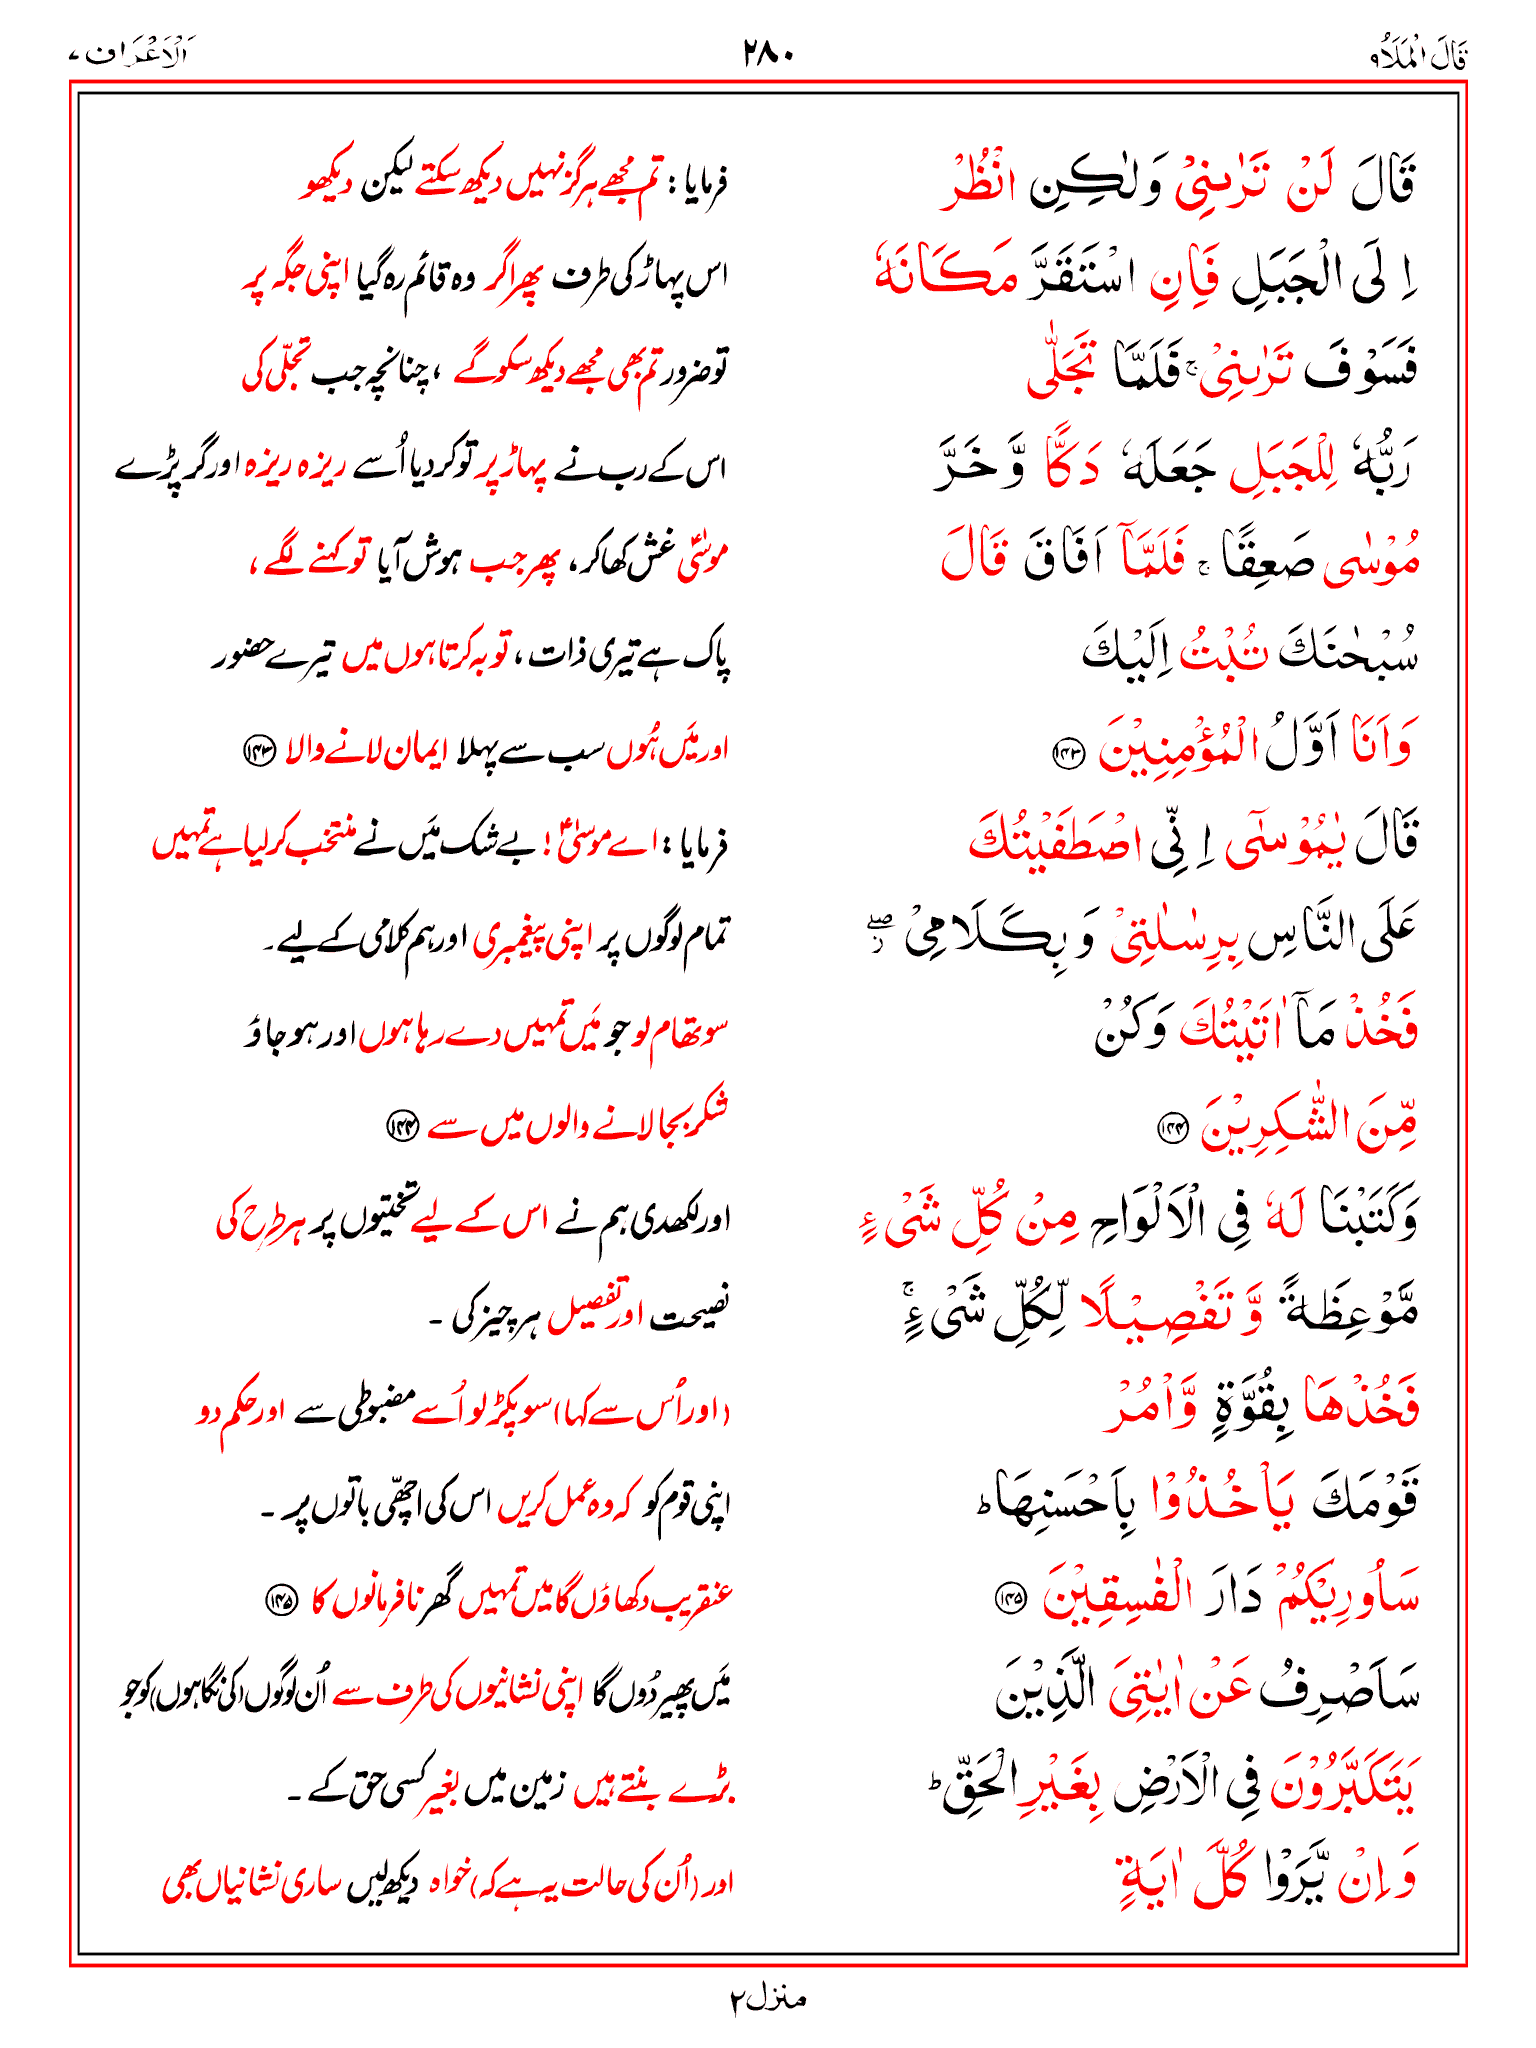 قَالَ الْمَلَاُ ۹
۲۸۰
اَلْاَعْرَاف ۷
قَالَ لَنْ تَرٰىنِیْ وَلٰكِنِ انْظُرْ
فرمایا: تم مجھے ہرگز نہیں دیکھ سکتے لیکن دیکھو
اِلَی الْجَبَلِ فَاِنِ اسْتَقَرَّ مَكَانَهٗ
اس پہاڑ کی طرف پھر اگر وہ قائم رہ گیا اپنی جگہ پر
فَسَوْفَ تَرٰىنِیْ ۚ فَلَمَّا تَجَلّٰی
تو ضرور تم بھی مجھے دیکھ سکو گے ، چنانچہ جب تجلّی کی
رَبُّهٗ لِلْجَبَلِ جَعَلَهٗ دَكًّا وَّ خَرَّ
اس کے رب نے پہاڑ پر تو کر دیا اُسے ریزہ ریزہ اور گر پڑے
مُوْسٰی صَعِقًا ۚ فَلَمَّاۤ اَفَاقَ قَالَ
موسٰیؑ غش کھا کر، پھر جب ہوش آیا تو کہنے لگے ،
سُبْحٰنَكَ تُبْتُ اِلَیْكَ
پاک ہے تیری ذات ، توبہ کرتا ہوں میں تیرے حضور
وَاَنَا اَوَّلُ الْمُؤْمِنِیْنَ ۱۴۳
اور مَیں ہُوں سب سے پہلا ایمان لانے والا ۱۴۳
قَالَ یٰمُوْسٰۤی اِنِّی اصْطَفَیْتُكَ
فرمایا: اے موسیٰؑ! بے شک مَیں نے منتخب کر لیا ہے تمہیں
عَلَی النَّاسِ بِرِسٰلٰتِیْ وَ بِكَلَامِیْ ۖؗ
تمام لوگوں پر اپنی پیغمبری اور ہم کلامی کے لیے۔
فَخُذْ مَاۤ اٰتَیْتُكَ وَكُنْ
سو تھام لو جو مَیں تمہیں دے رہا ہوں اور ہو جاؤ
مِّنَ الشّٰكِرِیْنَ ۱۴۴
شکر بجا لانے والوں میں سے ۱۴۴
وَكَتَبْنَا لَهٗ فِی الْاَلْوَاحِ مِنْ كُلِّ شَیْءٍ
اور لکھ دی ہم نے اس کے لیے تختیوں پر ہر طرح کی
مَّوْعِظَةً وَّ تَفْصِیْلًا لِّكُلِّ شَیْءٍ ۚ
نصیحت اور تفصیل ہر چیز کی ۔
فَخُذْهَا بِقُوَّةٍ وَّاْمُرْ
(اور اُس سے کہا) سو پکڑ لو اُسے مضبوطی سے اور حکم دو
قَوْمَكَ یَاْخُذُوْا بِاَحْسَنِهَا ؕ
اپنی قوم کو کہ وہ عمل کریں اس کی اچھّی باتوں پر ۔
سَاُورِیْكُمْ دَارَ الْفٰسِقِیْنَ ۱۴۵
عنقریب دکھاؤں گا میں تمہیں گھر نافرمانوں کا ۱۴۵
سَاَصْرِفُ عَنْ اٰیٰتِیَ الَّذِیْنَ
مَیں پھیر دُوں گا اپنی نشانیوں کی طرف سے اُن لوگوں (کی نگاہوں) کو جو
یَتَكَبَّرُوْنَ فِی الْاَرْضِ بِغَیْرِ الْحَقِّ ؕ
بڑے بنتے ہیں زمین میں بغیر کسی حق کے ۔
وَ اِنْ یَّرَوْا كُلَّ اٰیَةٍ
اور (اُن کی حالت یہ ہے کہ) خواہ دیکھ لیں ساری نشانیاں بھی
منزل ۲